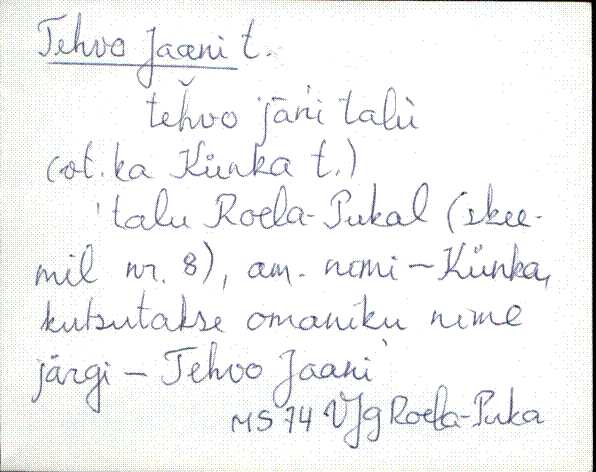 Tehvo Jaani t.
teȟvo jāńi talù
(vt. ka Künka t.)
talu Roela-Pukal (skee-
mil nr. 8), am. nimi – Künka,
kutsutakse omaniku nime
järgi – Tehvo Jaani
MS 74 VJg Roela-Puka